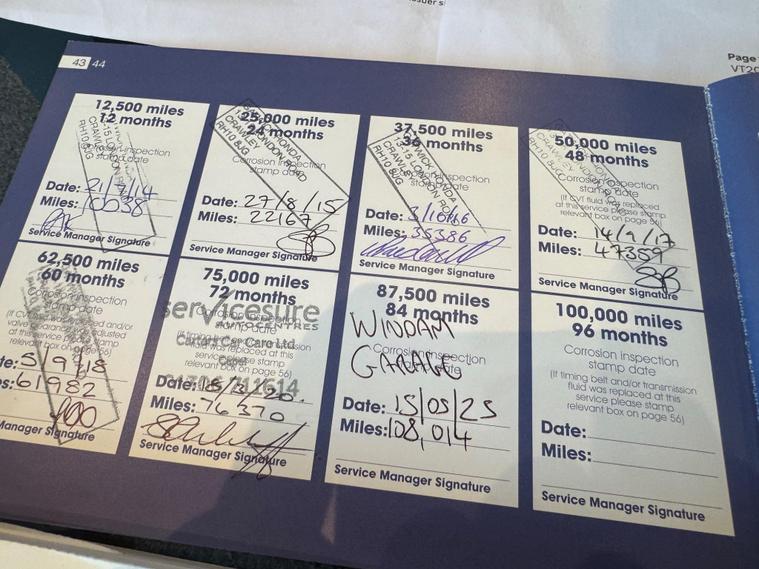 Page
VT20
43 44
12,500 miles
12 months
Corrosion inspection
stamp date
CRAWLEY
RH10 8JG
Date:
Miles: 10038
Service Manager Signature
25,000 miles
24 months
HONDA
LONDON ROAD
CRAWLEY
RH10 8JG
Corrosion inspection
stamp date
Date: 27/8/15
Miles: 22167
Service Manager Signature
37,500 miles
36 months
HONDA
13-15 LONDON RO
CRAWLEY
RH10 8JG
Corrosion inspection
stamp date
Date: 3/10/16
Miles: 35386
Service Manager Signature
50,000 miles
48 months
RH10 8JG
Corrosion inspection
stamp date
(If CVT fluid was replaced
at this service please stamp
relevant box on page 56)
Date: 14/9/17
Miles: 47359
Service Manager Signature
62,500 miles
60 months
Corrosion inspection
stamp date
and/or
adjusted
at this service please stamp
relevant box on page 56)
te: 5/9/18
s: 61982
Manager Signature
75,000 miles
72 months
servicesure
AUTOCENTRES
Carters Car Care Ltd
Capel
711614
Date:
Miles: 76370
Service Manager Signature
87,500 miles
84 months
WINDAM
GARAGE
Corrosion inspection
stamp date
Date: 15/05/25
Miles: 108,014
Service Manager Signature
100,000 miles
96 months
Corrosion inspection
stamp date
(If timing belt and/or transmission
fluid was replaced at this
service please stamp
relevant box on page 56)
Date:
Miles:
Service Manager Signature